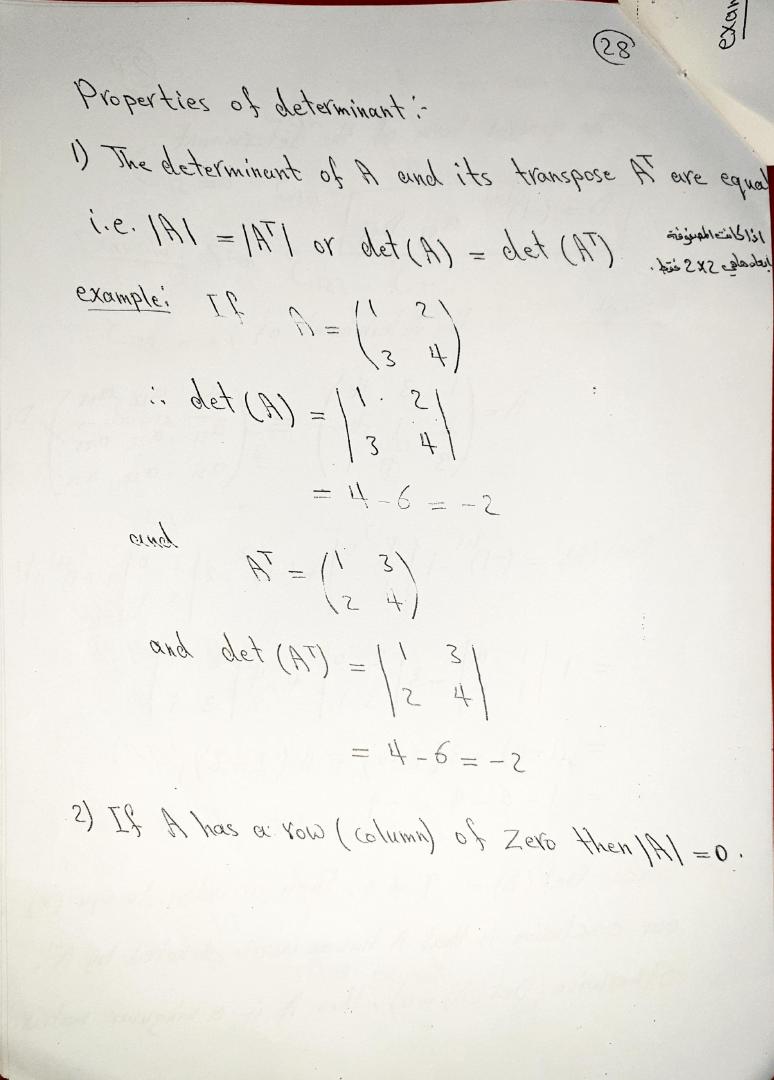 exam
28
Properties of determinant :-
1) The determinant of A and its transpose Aᵀ are equal
i.e. |A| = |Aᵀ| or det (A) = det (Aᵀ)
اذا كانت المصفوفة
ابعادها هي 2x2 فقط .
example: If A = (1 2
3 4)
∴ det (A) = |1 2
3 4|
= 4 - 6 = -2
and
Aᵀ = (1 3
2 4)
and det (Aᵀ) = |1 3
2 4|
= 4 - 6 = -2
2) If A has a row (column) of Zero then |A| = 0 .